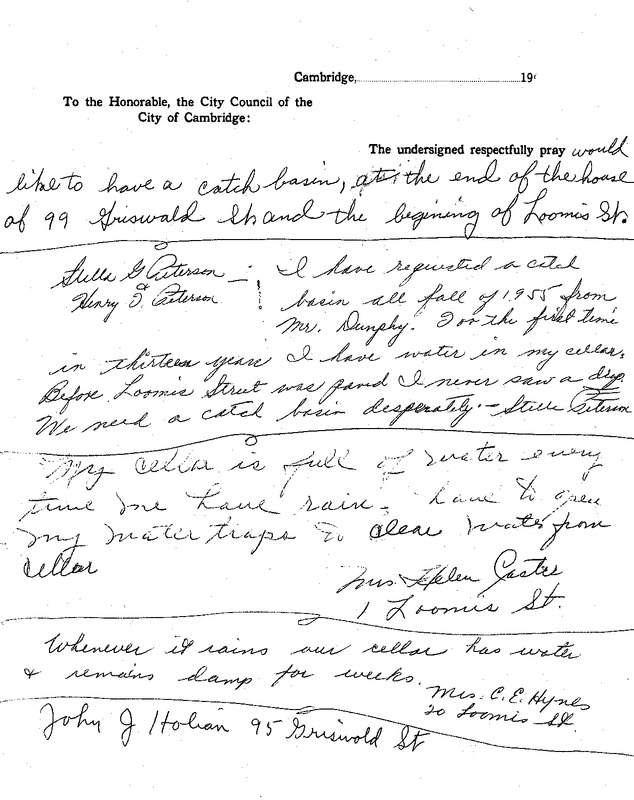 Cambridge, 19
To the Honorable, the City Council of the
City of Cambridge:
The undersigned respectfully pray would
like to have a catch basin, at the end of the house
of 99 Griswald St and the begining of Loomis St.
Stella G Peterson
& Henry T. Peterson
I have requested a catch
basin all fall of 1955 from
Mr. Dunphy. For the first time
in thirteen years I have water in my cellar.
Before Loomis Street was paved I never saw a drop.
We need a catch basin desperately. - Stella Peterson
My cellar is full of water every
time we have rain. have to open
my water traps to clear water from
cellar
Mrs. Helen
1 Loomis St.
Whenever it rains our cellar has water
& remains damp for weeks.
Mrs. C. E. Hynes
20 Loomis St.
John J Holian 95 Griswold St